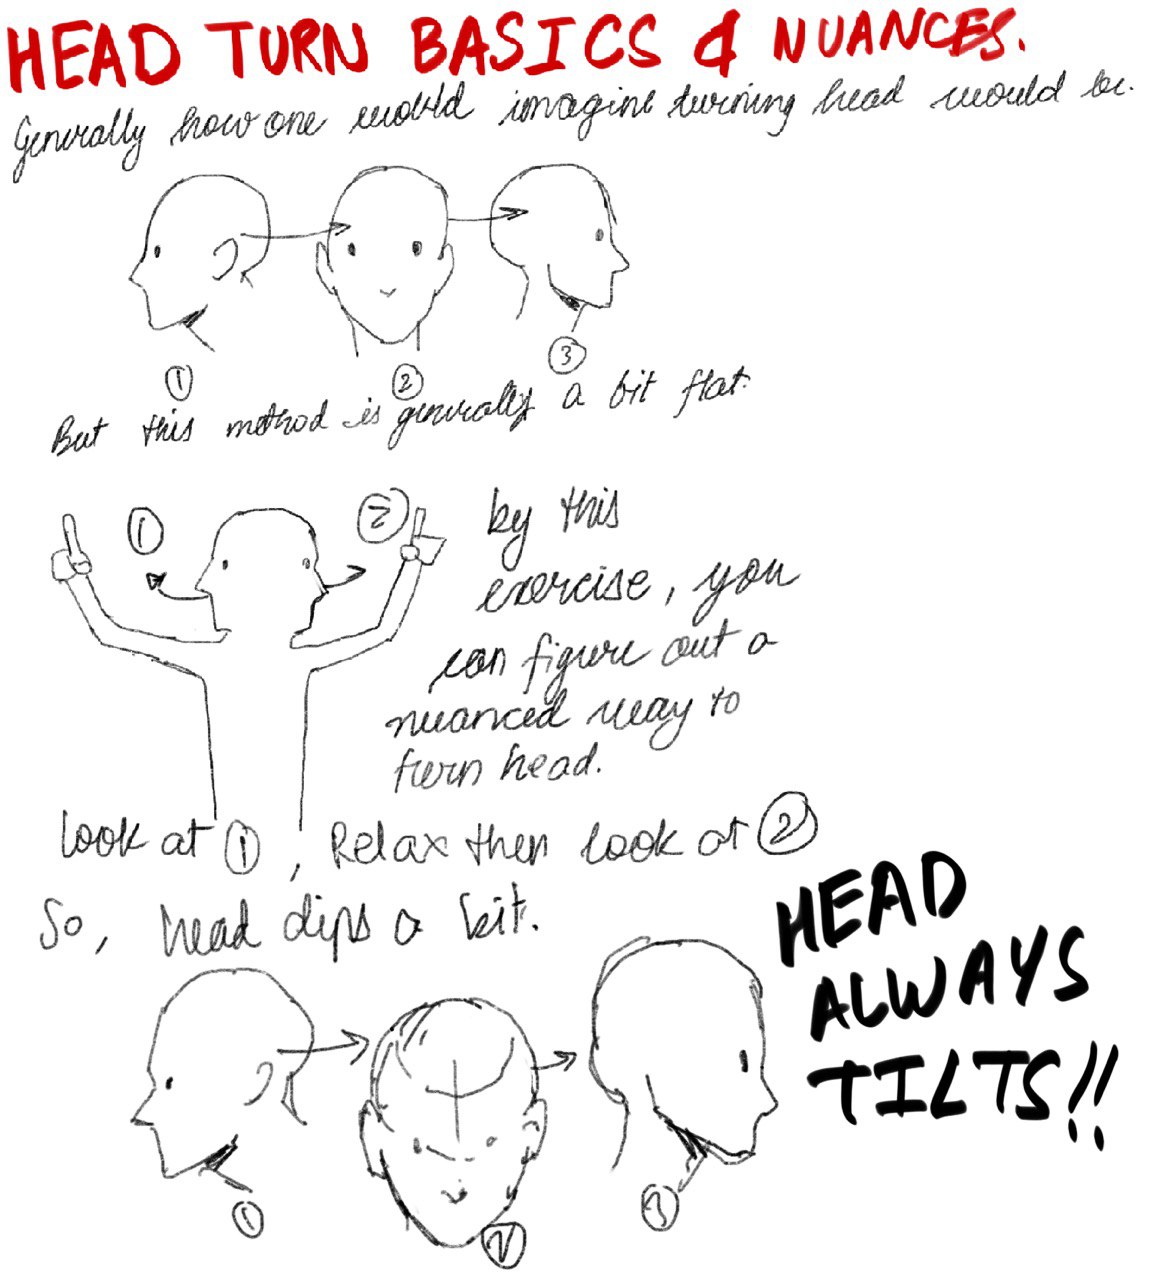 HEAD TURN BASICS & NUANCES.
Generally how one would imagine turning head would be.
1
2
3
But this method is generally a bit flat.
1
2
by this
exercise, you
can figure out a
nuanced way to
turn head.
Look at 1, Relax then look at 2
So, head dips a bit.
HEAD
ALWAYS
TILTS!!
1
2
3